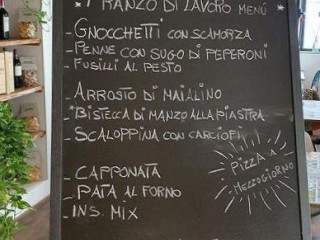 * PRANZO DI LAVORO MENÚ *
- GNOCCHETTI CON SCAMORZA
- PENNE CON SUGO DI PEPERONI
- FUSILLI AL PESTO
- ARROSTO DI MAIALINO
- BISTECCA DI MANZO ALLA PIASTRA
- SCALOPPINA CON CARCIOFI
PIZZA A
MEZZOGIORNO
- CAPPONATA
- PATA AL FORNO
- INS. MIX